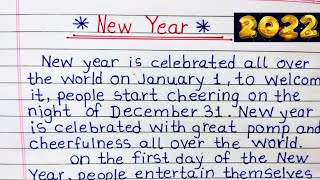 * New Year *
2022
New year is celebrated all over
the world on January 1, to welcom
it, people start cheering on the
night of December 31. New year
is celebrated with great pomp and
cheerfulness all over the world.
On the first day of the New
Year, people entertain themselves